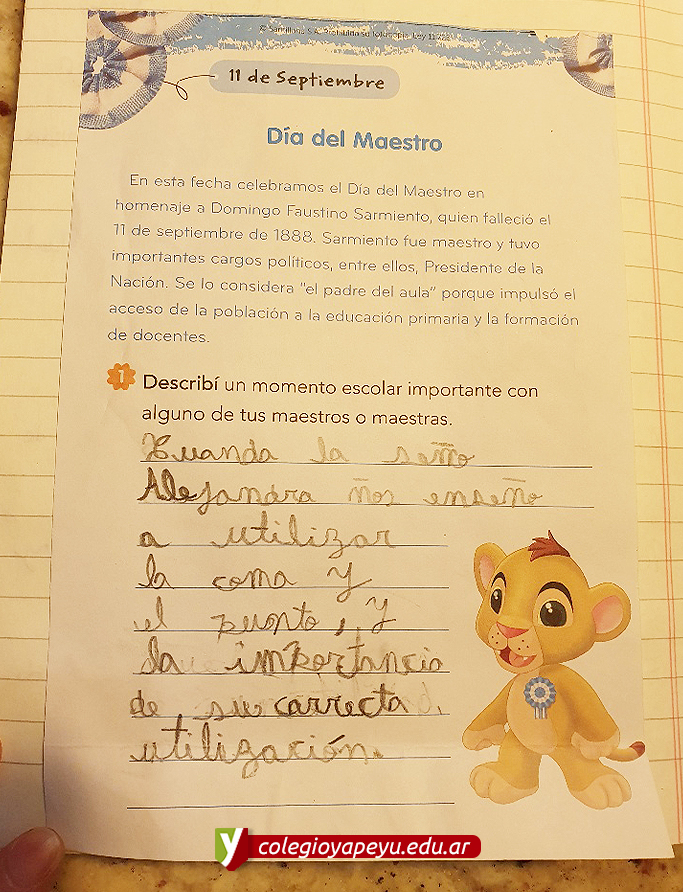 © Santillana S.A. Prohibida su fotocopia. Ley 11.723
11 de Septiembre
Día del Maestro
En esta fecha celebramos el Día del Maestro en
homenaje a Domingo Faustino Sarmiento, quien falleció el
11 de septiembre de 1888. Sarmiento fue maestro y tuvo
importantes cargos políticos, entre ellos, Presidente de la
Nación. Se lo considera "el padre del aula" porque impulsó el
acceso de la población a la educación primaria y la formación
de docentes.
1 Describí un momento escolar importante con
alguno de tus maestros o maestras.
Kuanda la seño
Alejandra ños enseño
a utilizar
la coma y
el puonto, y
la importancia
de su carrecta
utilización.
y colegioyapeyu.edu.ar